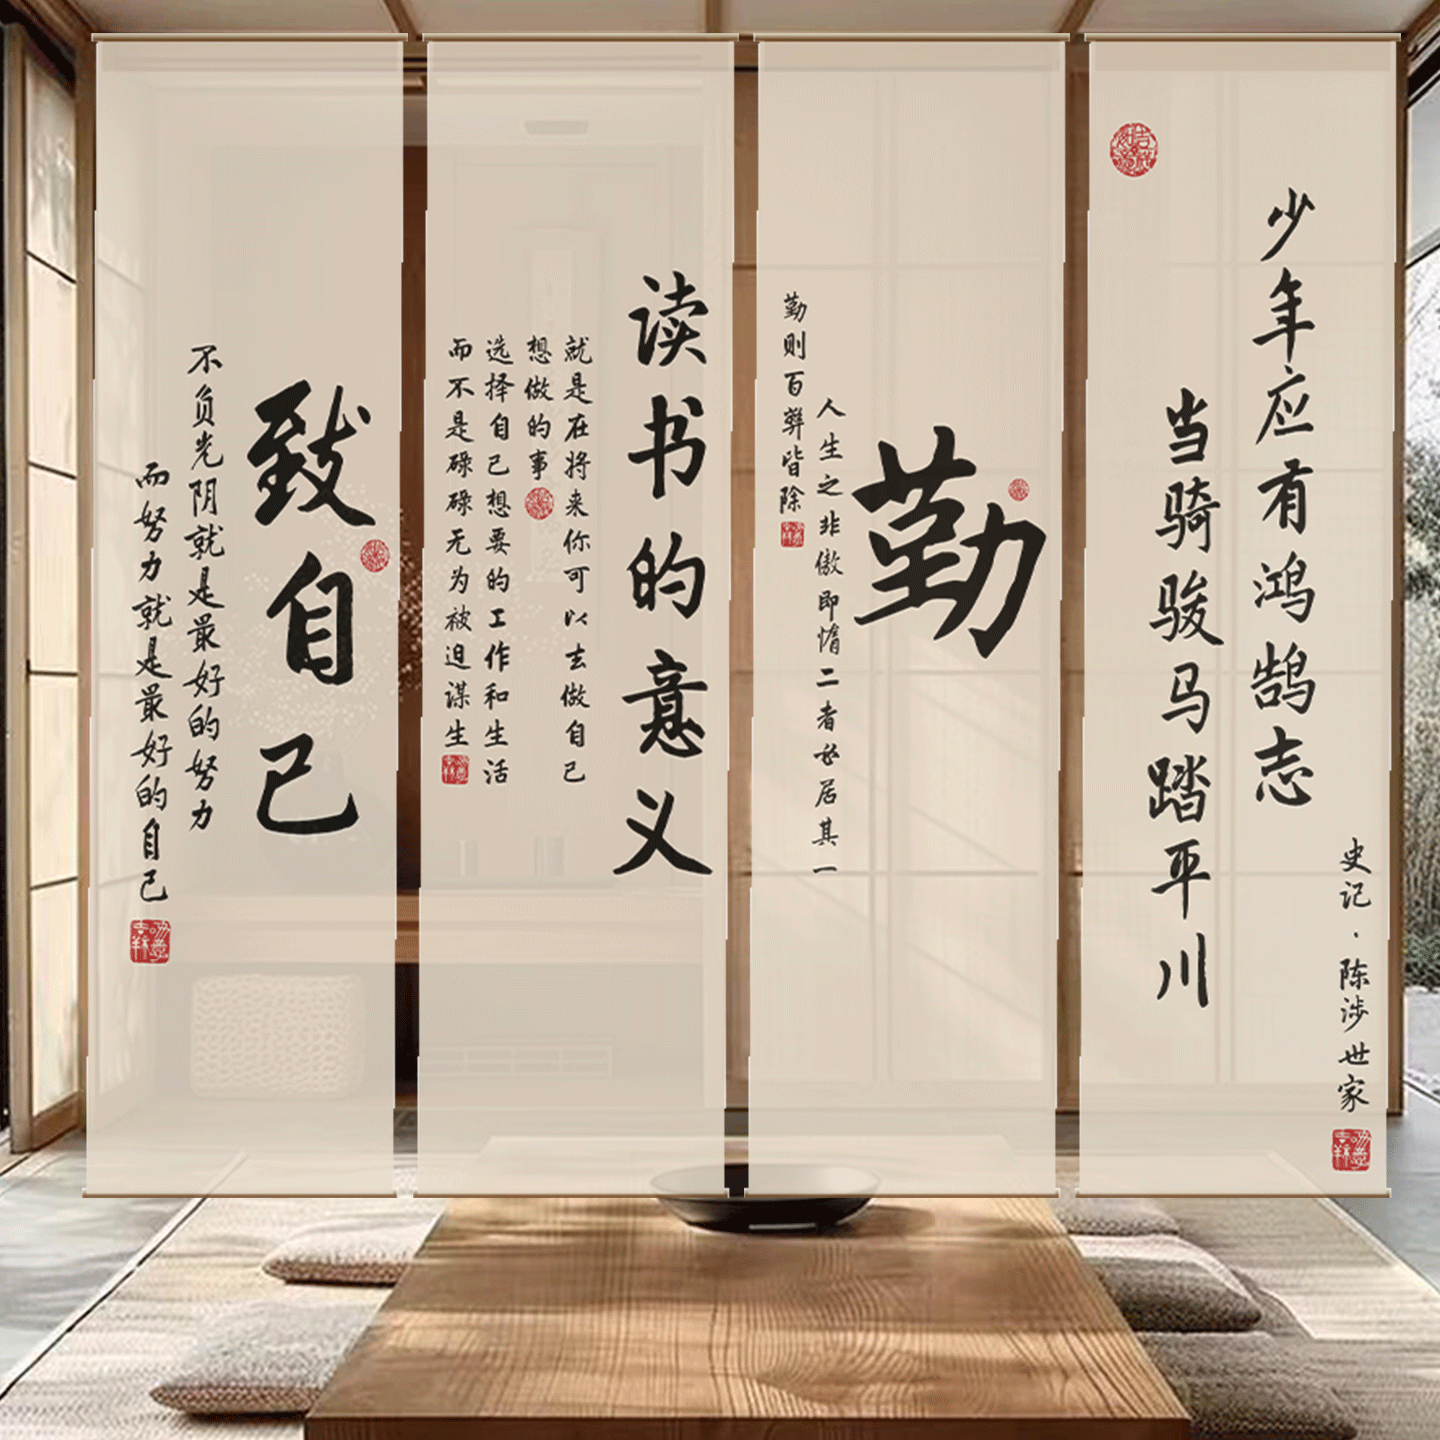 致自己
不负光阴就是最好的努力
而努力就是最好的自己
读书的意义
就是在将来你可以去做自己
想做的事
选择自己想要的工作和生活
而不是碌碌无为被迫谋生
勤
人生之非傲即惰二者必居其一
勤则百弊皆除
少年应有鸿鹄志
当骑骏马踏平川
史记·陈涉世家